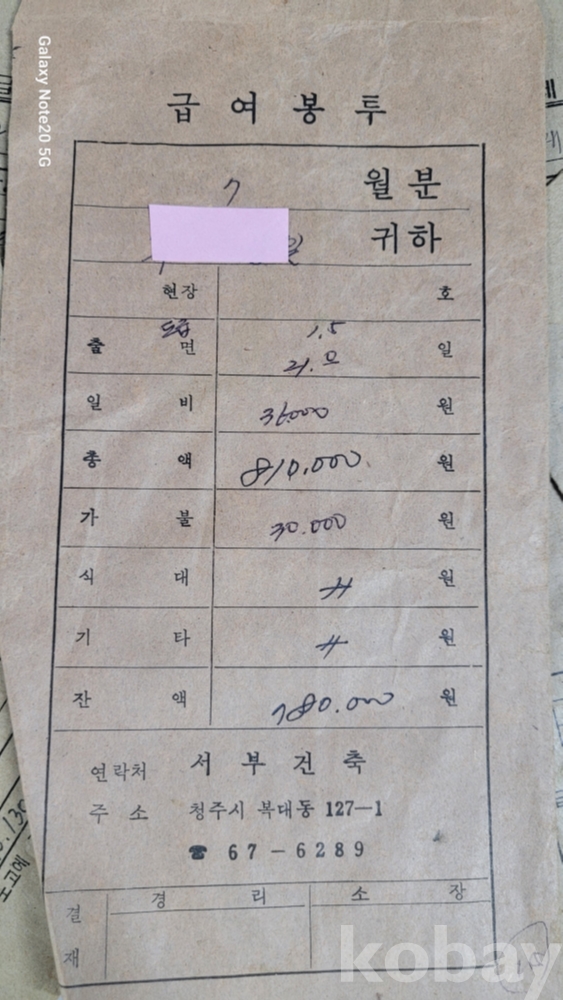 Galaxy Note20 5G
급여봉투
7 월분
귀하
현장 호
도급 1.5
출면 21.0 일
일비 36000 원
총액 810,000. 원
가불 30.000 원
식대 원
기타 원
잔액 780.000 원
연락처 서부건축
주소 청주시 복대동 127-1
☎ 67-6289
결재 경리 소장
kobay